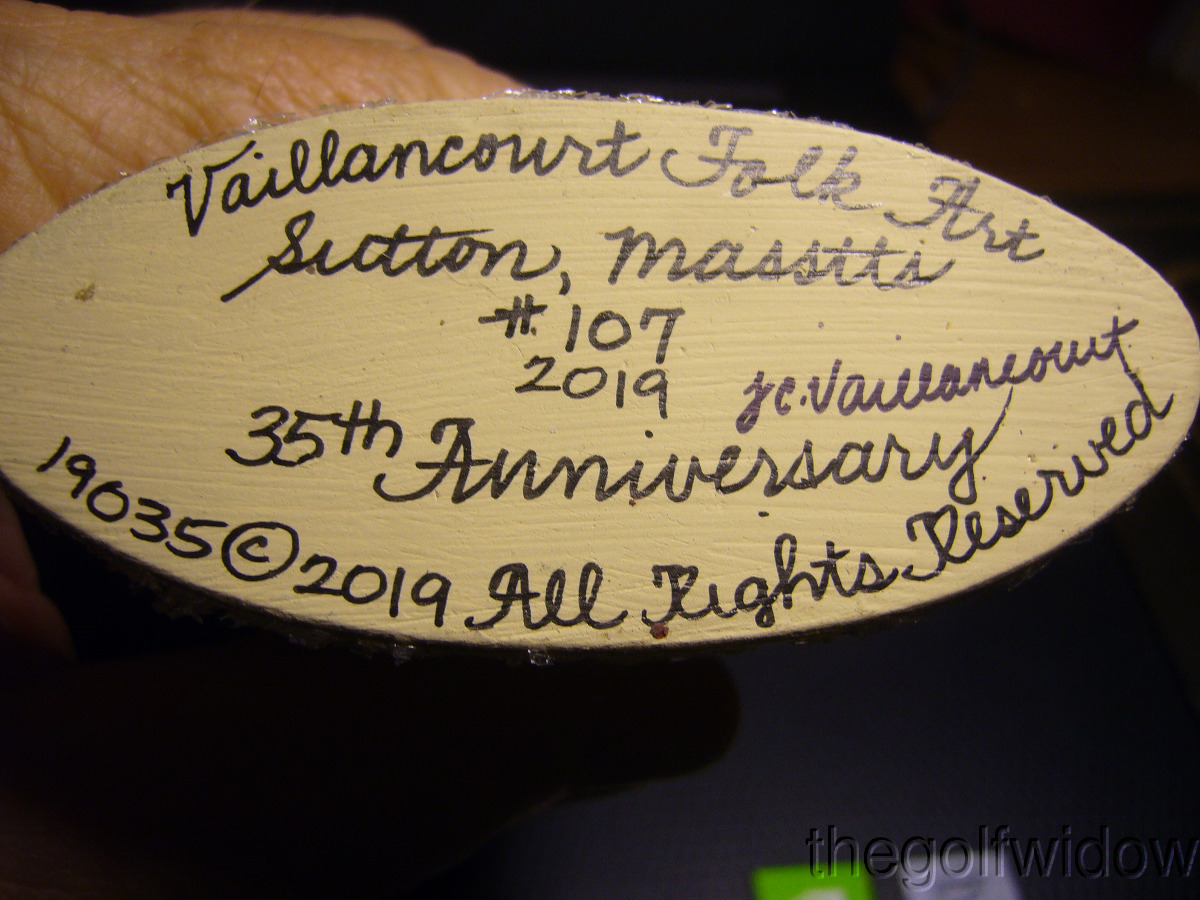 Vaillancourt Folk Art
Sutton, Massitts
#107
2019
jc.Vaillancourt
35th Anniversary
19035 © 2019 All Rights Reserved
thegolfwidow